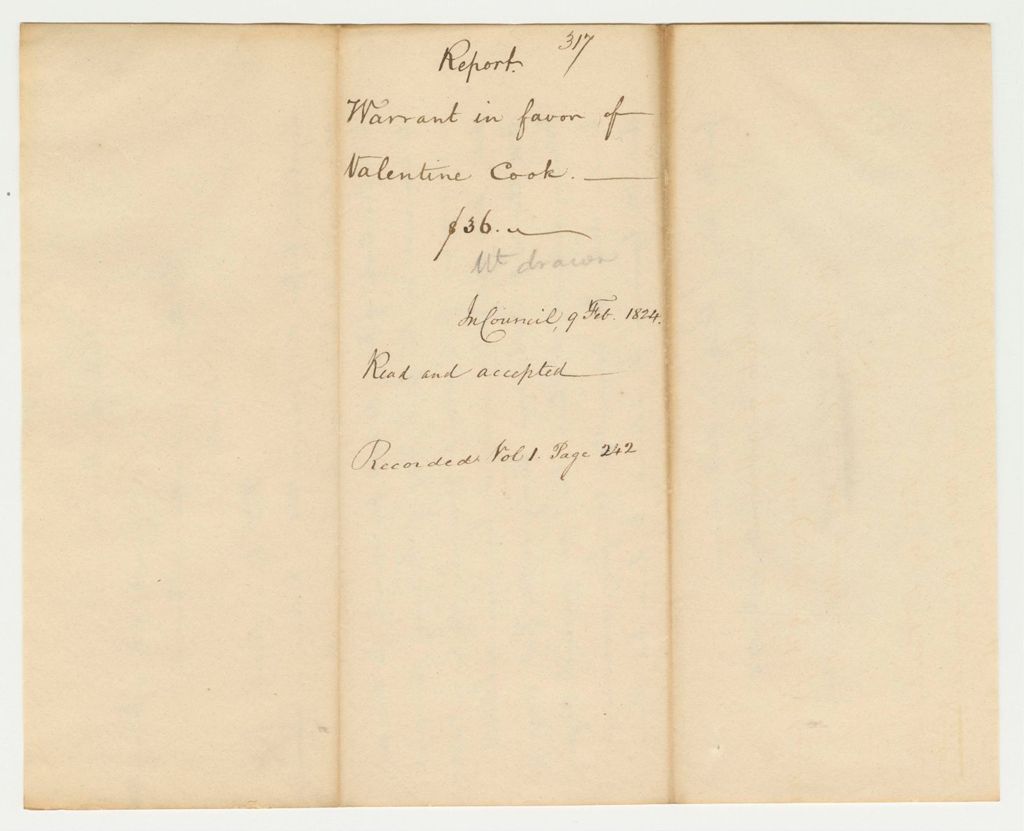 317
Report.
Warrant in favor of
Valentine Cook. —
$36. —
Wt drawn
In Council, 9 Feb. 1824.
Read and accepted —
Recorded Vol 1. Page 242